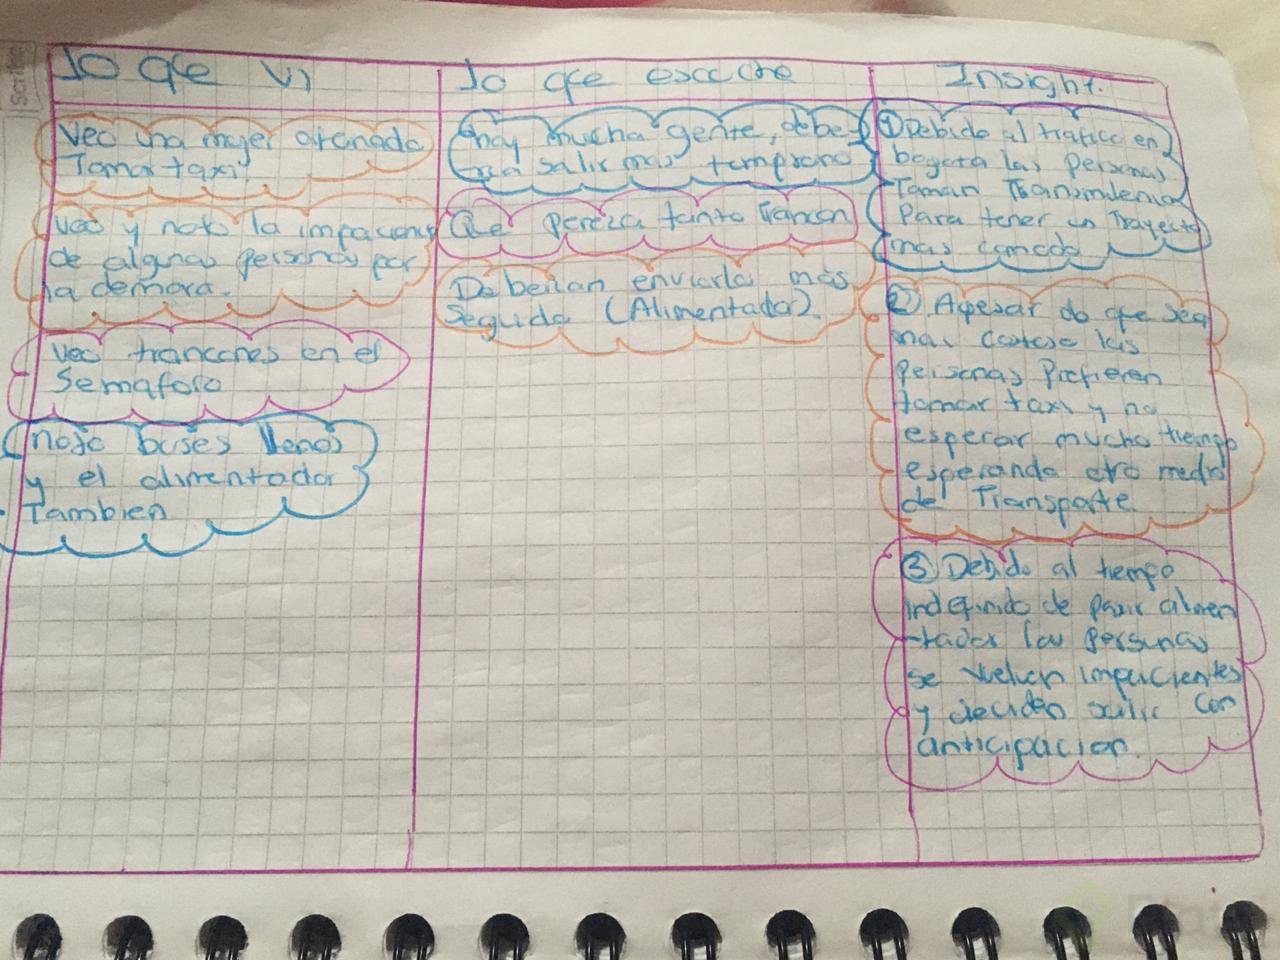 lo que vi
Veo una mujer afanada
Tomar taxi!
Veo y noto la impaciencia
de algunas personas por
la demora.
Veo trancones en el
Semaforo
noto buses llenos
y el alimentador
Tambien
lo que escuche
hay mucha gente, debe-
ria salir mas temprano
Que pereza tanto Trancon
Deberian enviarlos más
Seguido (Alimentador).
Insight.
① Debido al trafico en
bogota las personas
Toman Transmilenio
Para tener un Trayecto
mas comodo
② Apesar de que sea
mas costoso las
personas Prefieren
tomar taxi y no
esperar mucho tiempo
esperando otro medio
de Transporte.
③ Debido al tiempo
indefinido de pasar alimen
-tador las personas
se vuelven impacientes
y deciden salir con
anticipacion.
Scribe